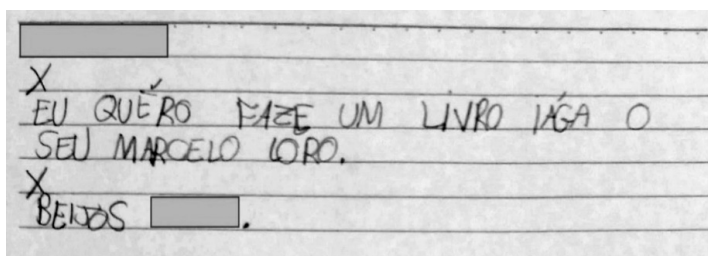 X
EU QUÉRO FAZE UM LIVRO IÁGA O
SEU MARCELO LORO.
X
BEIJOS .